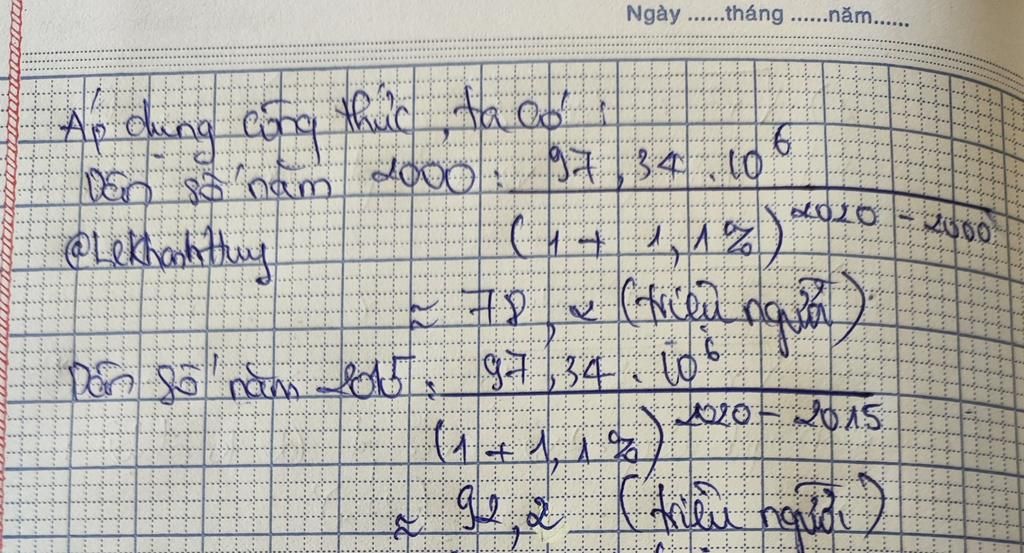 Ngày ......tháng ......năm......
Áp dụng công thức, ta có :
Dân số năm 2000 : 97,34 . 10⁶
@Lekhanhthuy (1 + 1,1%)²⁰²⁰ ⁻ ²⁰⁰⁰
≈ 78,2 (triệu người)
Dân số năm 2015 : 97,34 . 10⁶
(1 + 1,1%)²⁰²⁰ ⁻ ²⁰¹⁵
≈ 92,2 (triệu người)